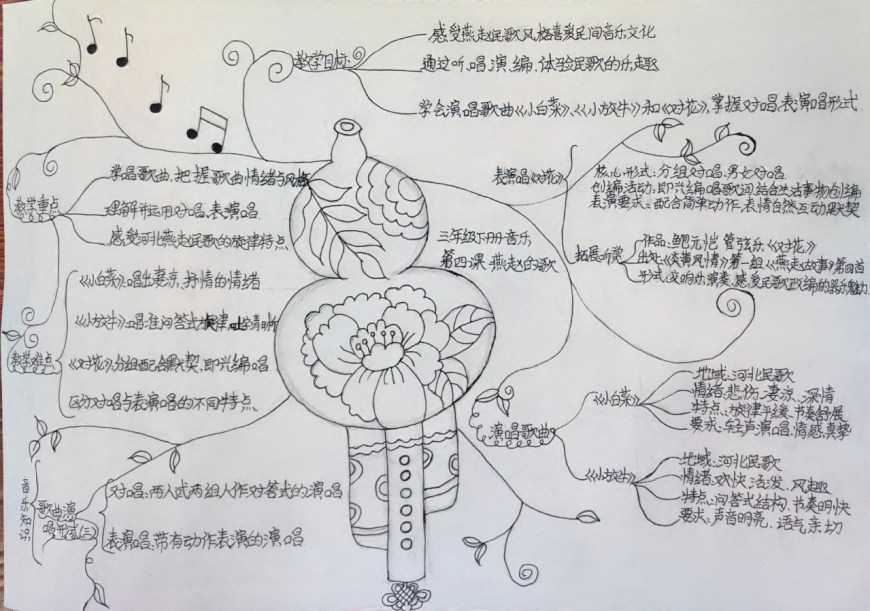 教学目标
感受燕赵民歌风格喜爱民间音乐文化
通过听、唱、演、编、体验民歌的乐趣
学会演唱歌曲《小白菜》、《小放牛》和《对花》，掌握对唱、表演唱形式
教学重点
学唱歌曲、把握歌曲情绪与风格
理解并运用对唱、表演唱
感受河北燕赵民歌的旋律特点
教学难点
《小白菜》：唱出凄凉、抒情的情绪
《小放牛》：唱准问答式旋律、吐字清晰
《对花》分组配合默契、即兴编唱
区分对唱与表演唱的不同特点
音乐知识
歌曲演唱形式(三)
对唱：两人或两组人作对答式的演唱
表演唱：带有动作表演的演唱
三年级下册音乐
第四课 燕赵的歌
表演唱《对花》
核心形式：分组对唱、男女对唱
创编活动：即兴编唱歌词，结合生活事物创编
表演要求：配合简单动作，表情自然互动默契
拓展听赏
作品：鲍元恺 管弦乐《对花》
出处：《炎黄风情》第一组《燕赵故事》第四首
形式：交响乐演奏，感受民歌改编的器乐魅力
演唱歌曲
《小白菜》
地域：河北民歌
情绪：悲伤、凄凉、深情
特点：旋律平缓、节奏舒展
要求：轻声演唱、情感真挚
《小放牛》
地域：河北民歌
情绪：欢快、活泼、风趣
特点：问答式结构、节奏明快
要求：声音明亮、语气亲切